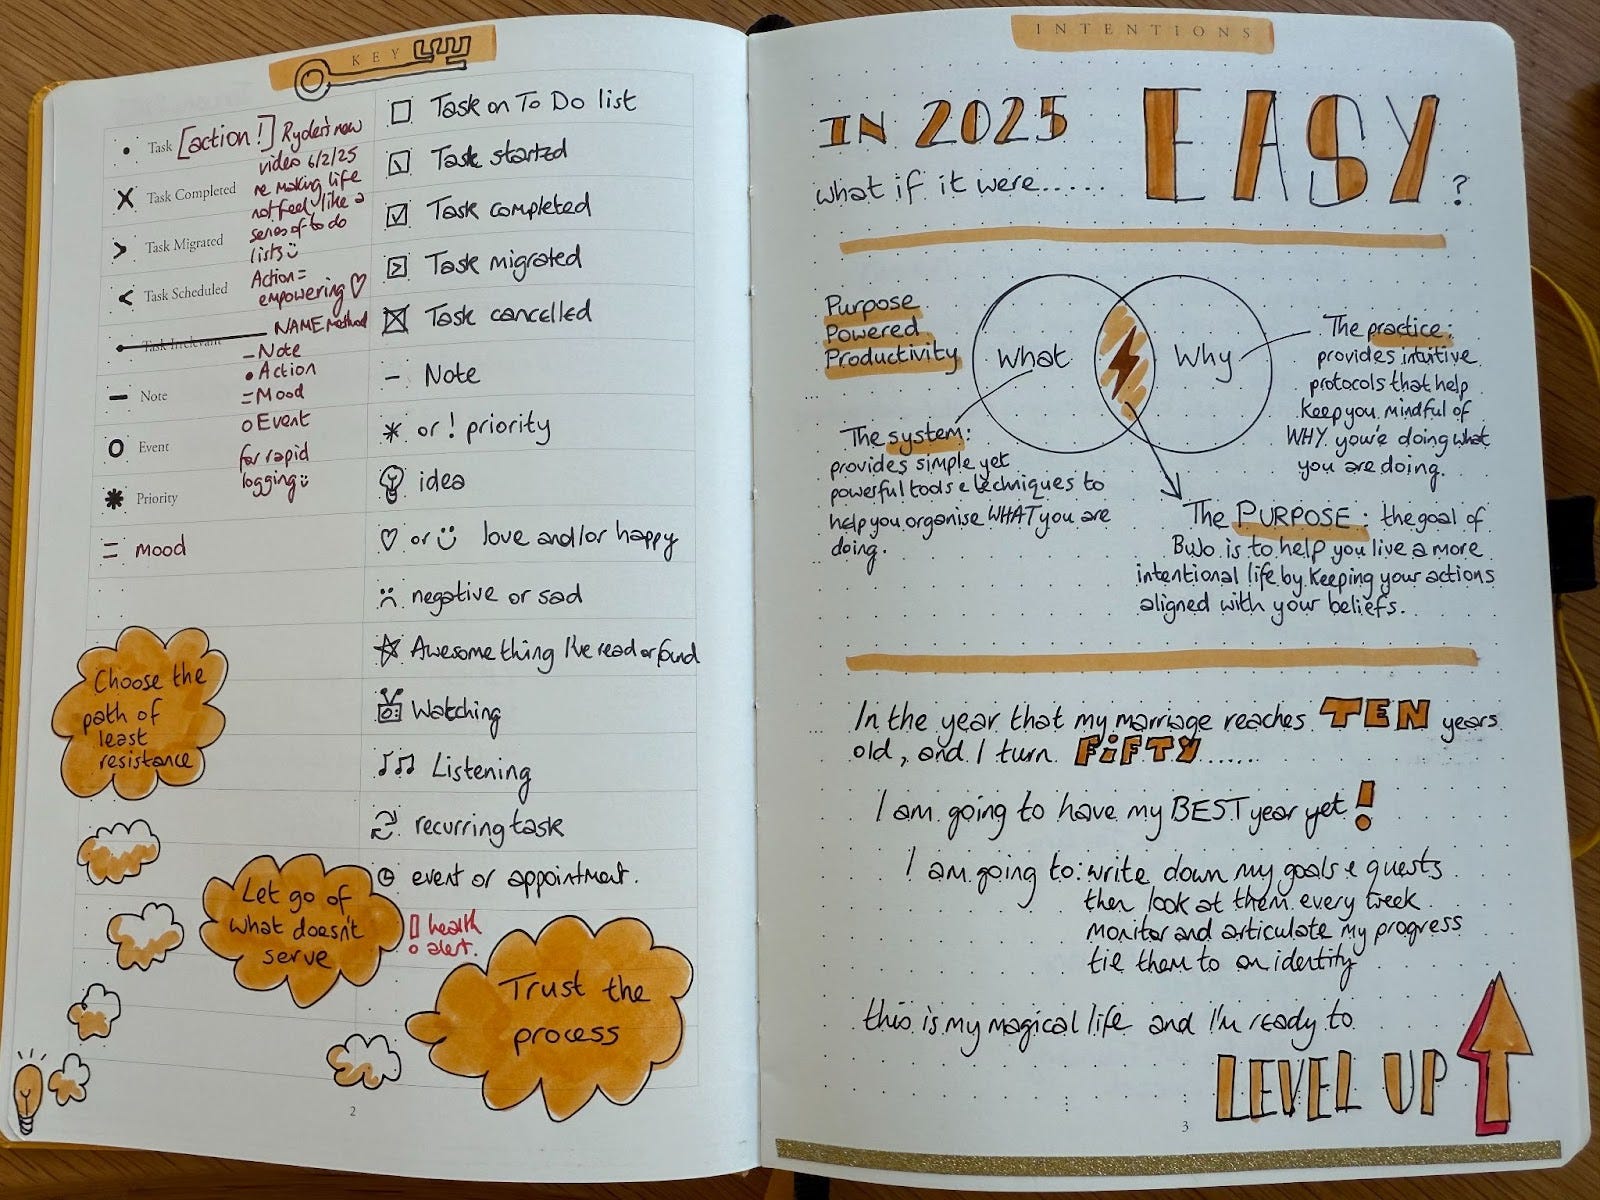 KEY
Task [action!] Ryder's new
video 6/2/25
re making life
not feel like a
series of to do
lists
Action =
empowering ♡
NAME method
Task Completed
Task Migrated
Task Scheduled
Task Irrelevant
– Note
• Action
= Mood
o Event
for rapid
logging
Note
Event
Priority
= mood
Task on To Do list
Task started
Task completed
Task migrated
Task cancelled
– Note
* or ! priority
idea
♡ or love and/or happy
negative or sad
Awesome thing I've read or found
Watching
Listening
recurring task
event or appointment.
! health
alert.
Choose the
path of
least
resistance
Let go of
what doesn't
serve
Trust the
process
2
INTENTIONS
IN 2025
what if it were...... EASY?
Purpose
Powered
Productivity
What
Why
The practice:
provides intuitive
protocols that help
keep you mindful of
WHY you're doing what
you are doing.
The system:
provides simple yet
powerful tools & techniques to
help you organise WHAT you are
doing.
The PURPOSE: the goal of
BuJo is to help you live a more
intentional life by keeping your actions
aligned with your beliefs.
In the year that my marriage reaches TEN years
old, and I turn FiFTY......
I am going to have my BEST year yet!
I am going to: write down my goals & quests
then look at them every week
monitor and articulate my progress
tie them to an identity
this is my magical life and I'm ready to
LEVEL UP
3